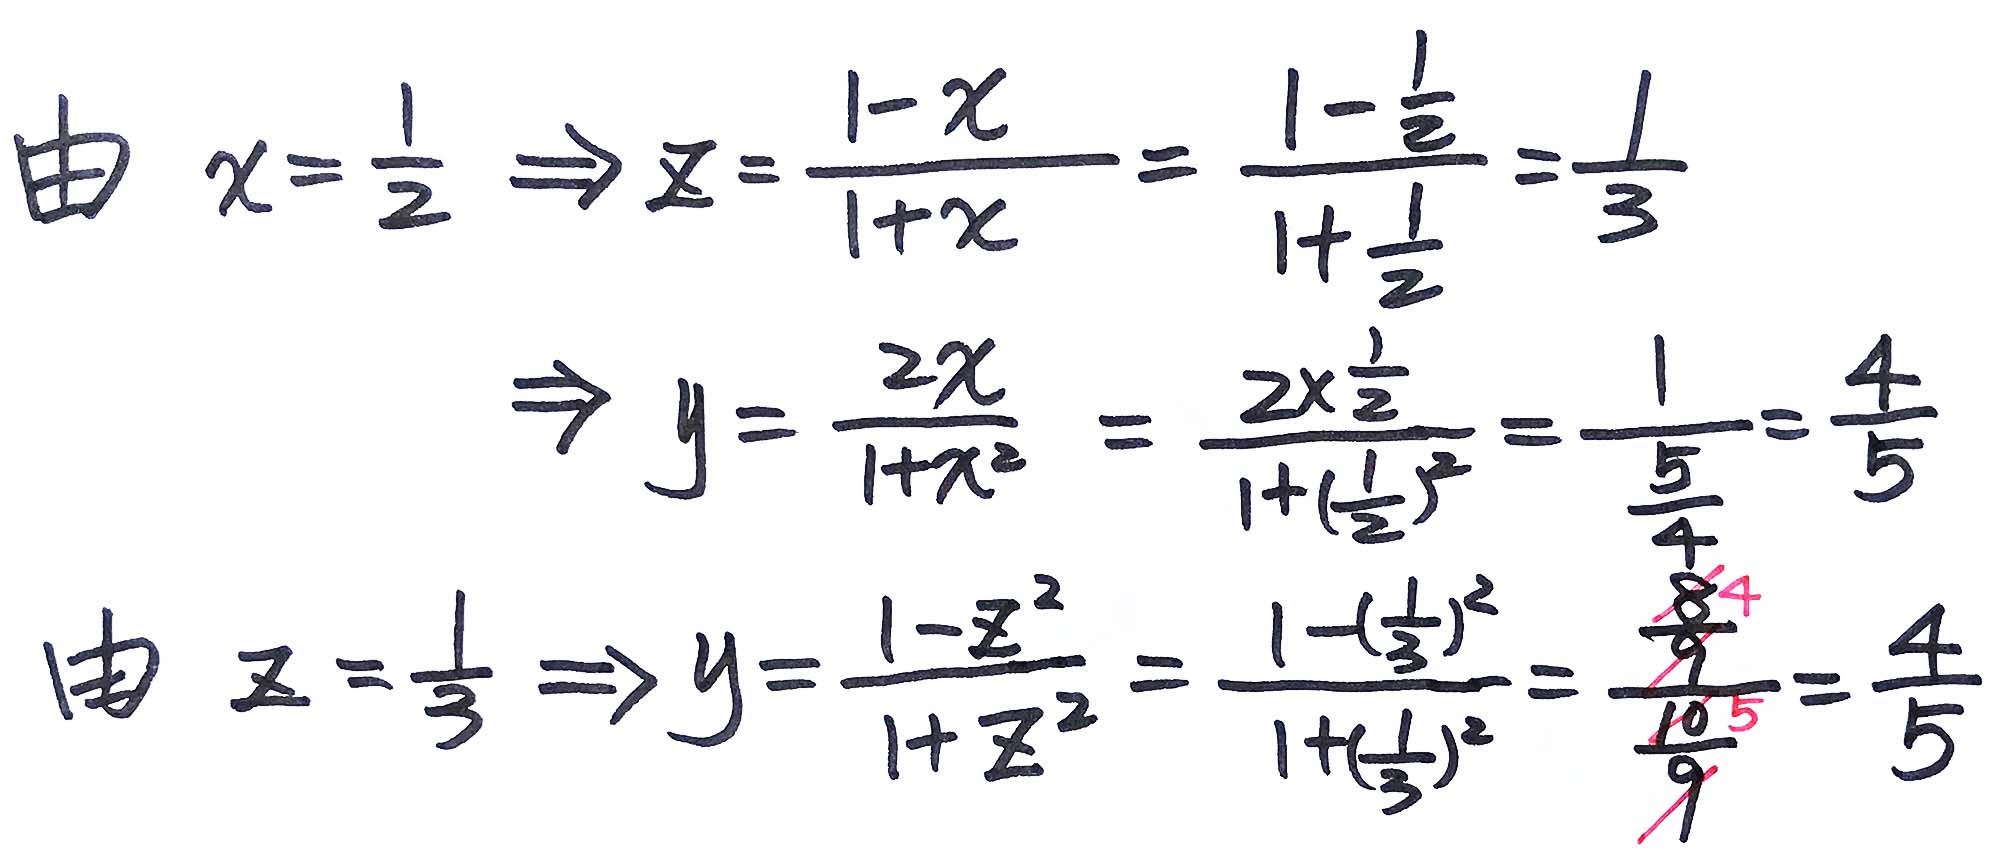 由 x = 1/2 ⇒ z = (1-x)/(1+x) = (1-1/2)/(1+1/2) = 1/3
⇒ y = 2x/(1+x²) = (2×1/2)/(1+(1/2)²) = 1/(5/4) = 4/5
由 z = 1/3 ⇒ y = (1-z²)/(1+z²) = (1-(1/3)²)/(1+(1/3)²) = (8/9)/(10/9) 4 5 = 4/5